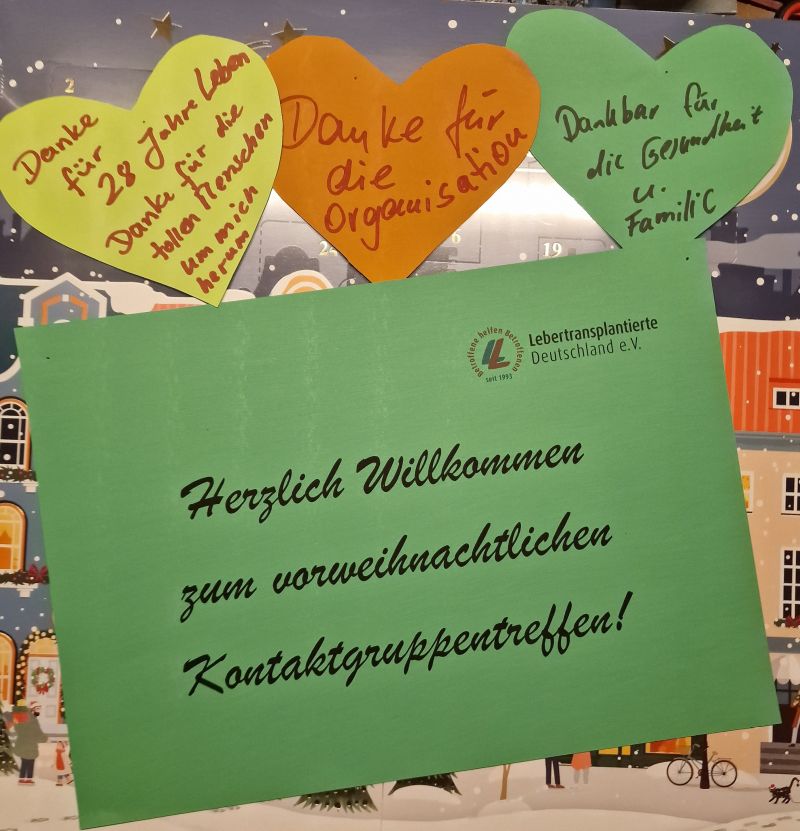 2
Danke
für
28 Jahre Leben
Danke für die
tollen Menschen
um mich
herum
Danke für
die
Organisation
Dankbar für
die Gesundheit
u.
Familie
24
6
19
Betroffene helfen Betroffenen
seit 1993
Lebertransplantierte
Deutschland e.V.
Herzlich Willkommen
zum vorweihnachtlichen
Kontaktgruppentreffen!